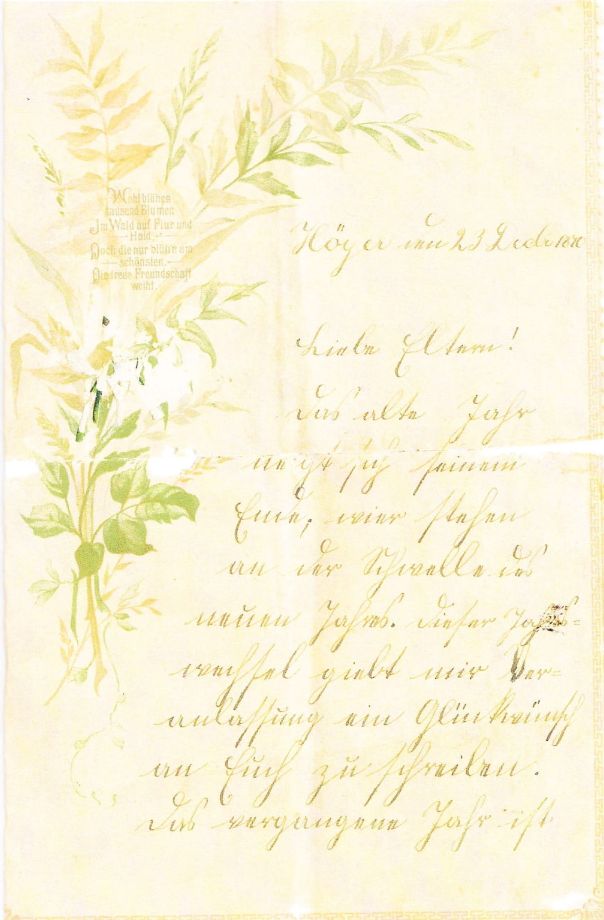 Wohl blühen
tausend Blumen
Im Wald auf Flur und
Haid
Doch die nur blüh'n am
schönsten
Die treue Freundschaft
weiht.
Höyer den 23 Decbr
Liebe Eltern!
Das alte Jahr
neigt sich seinem
Ende, wier stehen
an der Schwelle des
neuen Jahres. Dieser Jahres-
wechsel giebt mir Ver-
anlassung ein Glückwünsch
an Euch zu schreiben.
Das vergangene Jahr ist